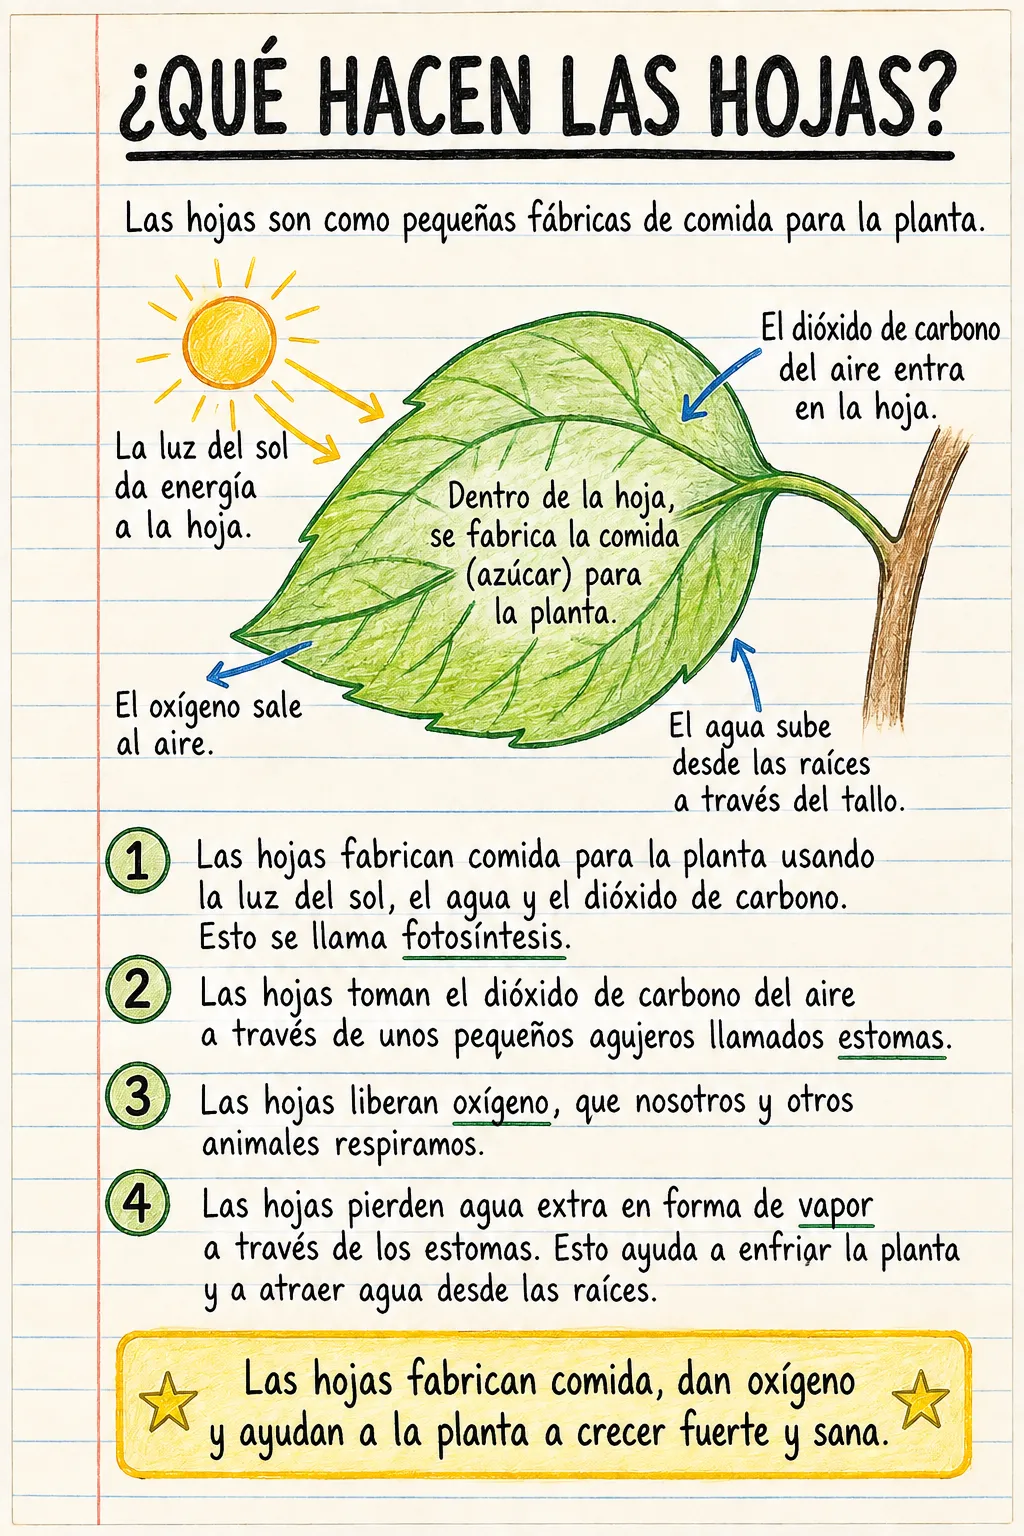 ¿QUÉ HACEN LAS HOJAS?
Las hojas son como pequeñas fábricas de comida para la planta.
El dióxido de carbono
del aire entra
en la hoja.
La luz del sol
da energía
a la hoja.
Dentro de la hoja,
se fabrica la comida
(azúcar) para
la planta.
El oxígeno sale
al aire.
El agua sube
desde las raíces
a través del tallo.
1
Las hojas fabrican comida para la planta usando
la luz del sol, el agua y el dióxido de carbono.
Esto se llama fotosíntesis.
2
Las hojas toman el dióxido de carbono del aire
a través de unos pequeños agujeros llamados estomas.
3
Las hojas liberan oxígeno, que nosotros y otros
animales respiramos.
4
Las hojas pierden agua extra en forma de vapor
a través de los estomas. Esto ayuda a enfriar la planta
y a atraer agua desde las raíces.
Las hojas fabrican comida, dan oxígeno
y ayudan a la planta a crecer fuerte y sana.